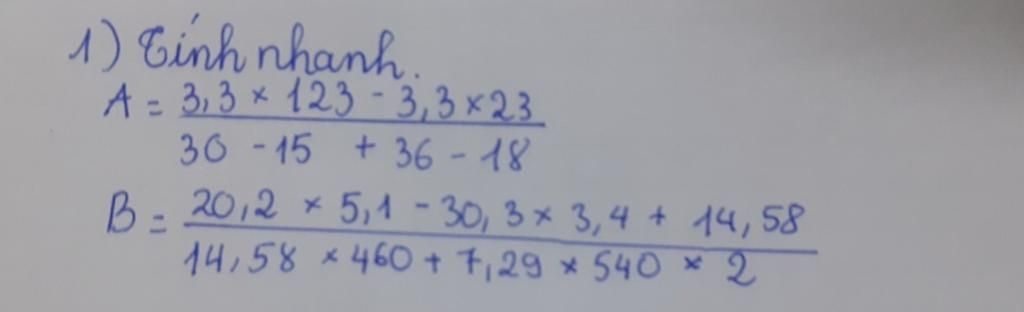 1) Tính nhanh.
A = 3,3 × 123 - 3,3 × 23
30 - 15 + 36 - 18
B = 20,2 × 5,1 - 30,3 × 3,4 + 14,58
14,58 × 460 + 7,29 × 540 × 2